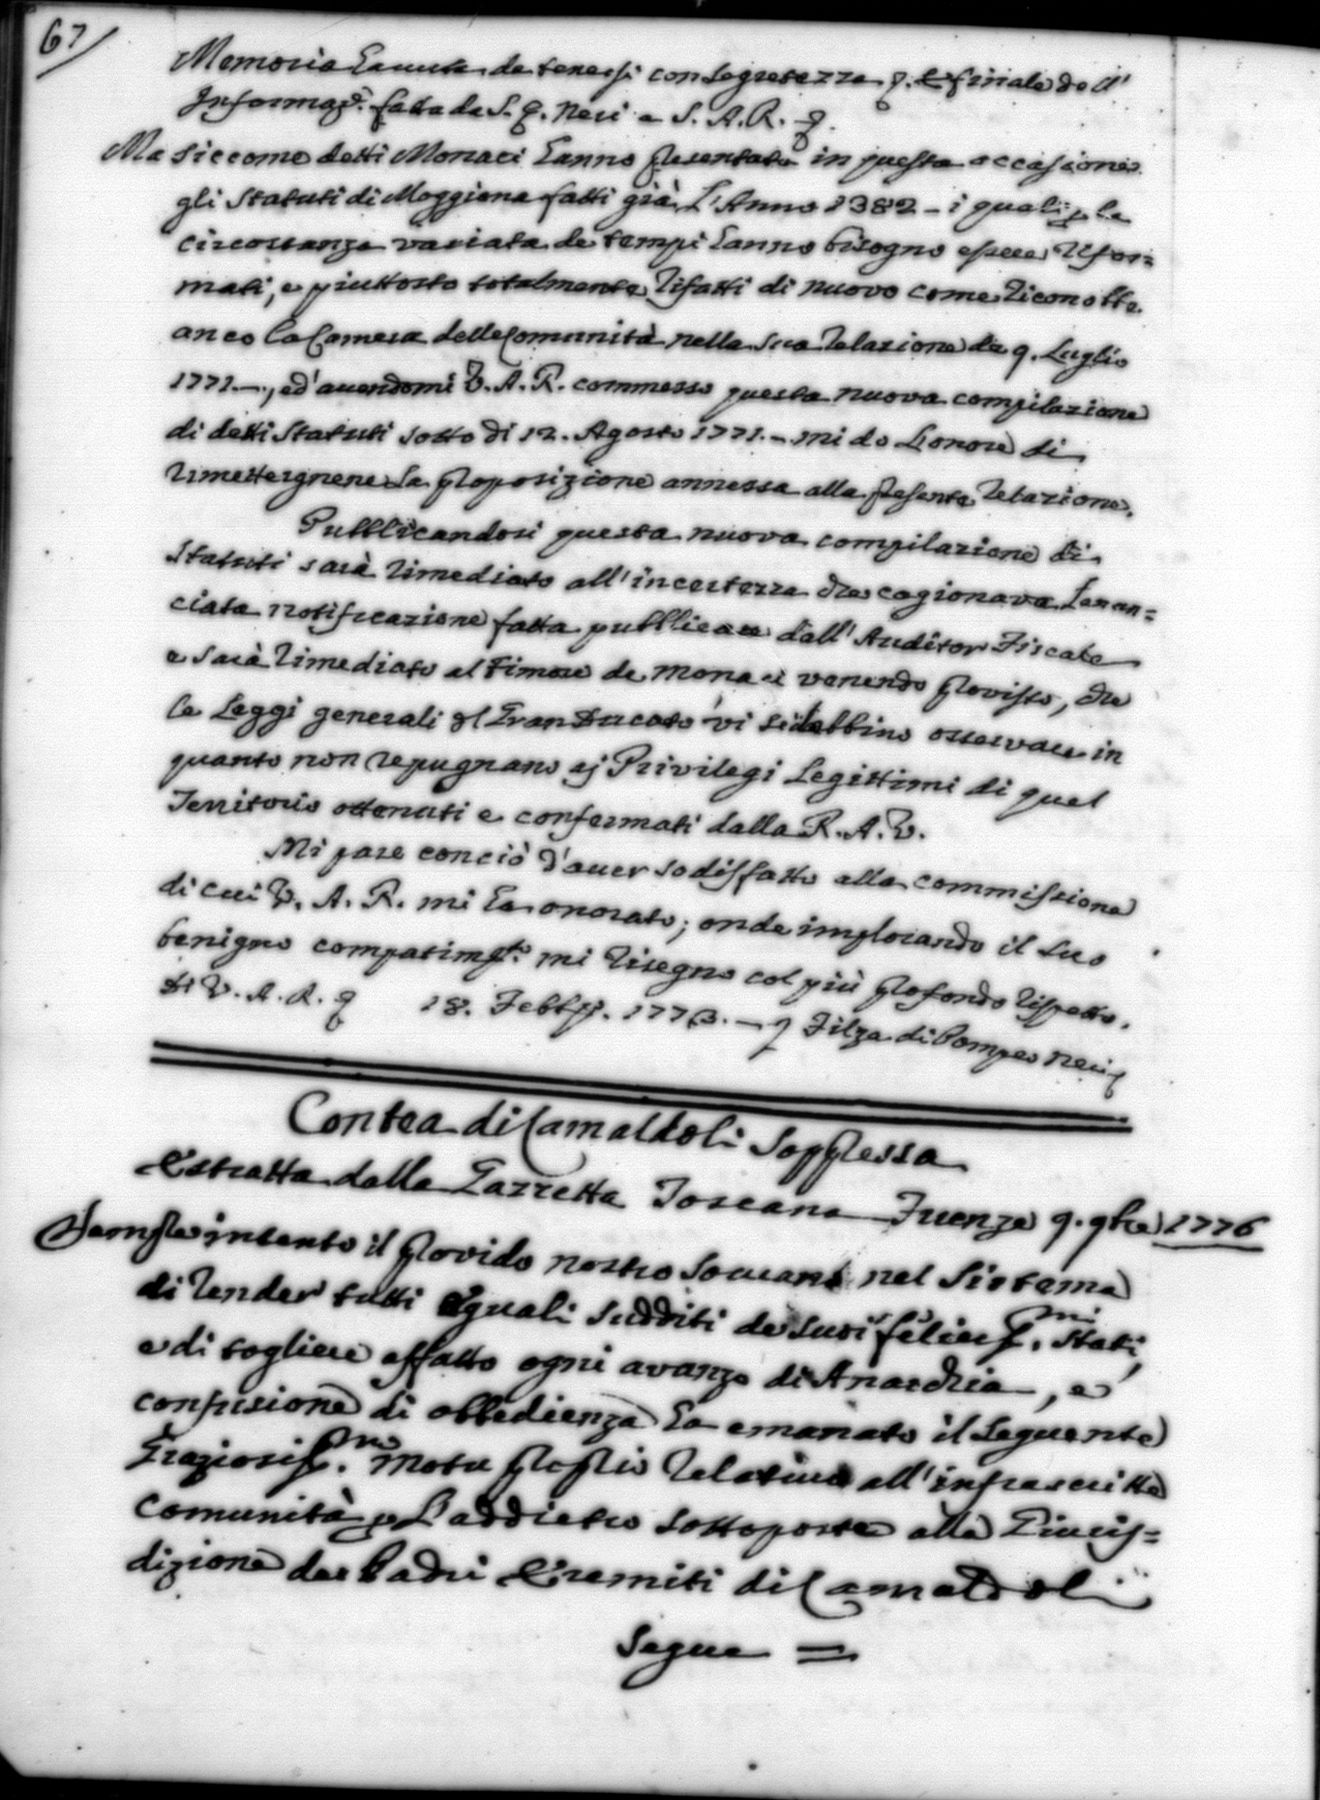 67
Memoria hauuta da tenersi con segretezza p. e finale dell'
Informaz.e fatta da S. P. Neri a S. A. R. p.
Ma siccome detti Monaci hanno presentato in questa occasione
gli Statuti di Moggiona fatti già l'Anno 1382 - i quali p. la
circostanza variata de tempi hanno bisogno essere rifor=
mati, e piuttosto totalmente rifatti di nuovo come riconobbe
anco la Camera delle Comunità nella sua relazione de 9. Luglio
1771. -, ed' auendomi V. A. R. commesso questa nuova compilazione
di detti Statuti sotto di 12. Agosto 1771. - mi do l'onore di
rimettergnene la proposizione annessa alla presente relazione.
Pubblicandosi questa nuova compilazione di
Statuti sarà rimediato all' incertezza che cagionava l'enun=
ciata notificazione fatta pubblicare dall' Auditor Fiscale
e sarà rimediato al timore de Monaci venendo provisto, che
le Leggi generali del Gran Ducato vi si debbino osservare in
quanto non repugnano ai Privilegi Legittimi di quel
Territorio ottenuti e confermati dalla R. A. V.
Mi pare con ciò d'auer sodisfatto alla commissione
di cui V. A. R. mi ha onorato; onde implorando il suo
benigno compatim.to mi risegno col più profondo rispetto.
Di V. A. R. p 18. Febb. 1773. - p Filza di Pompeo Neri
Contea di Camaldoli Soppressa
Estratta dalla Gazzetta Toscana Firenze 9. 9bre 1776
Sempre intento il provido nostro Sourano nel Sistema
di render tutti eguali sudditi de suoi feliciss.mi Stati,
e di togliere affatto ogni avanzo di Anarchia, e
confusione di obbedienza ha emanato il seguente
Graziosiss.mo Motu proprio relativo all' infrascritte
Comunità p. l'addietro sottoposte alla Giuris=
dizione de Padri Eremiti di Camaldoli
Segue =